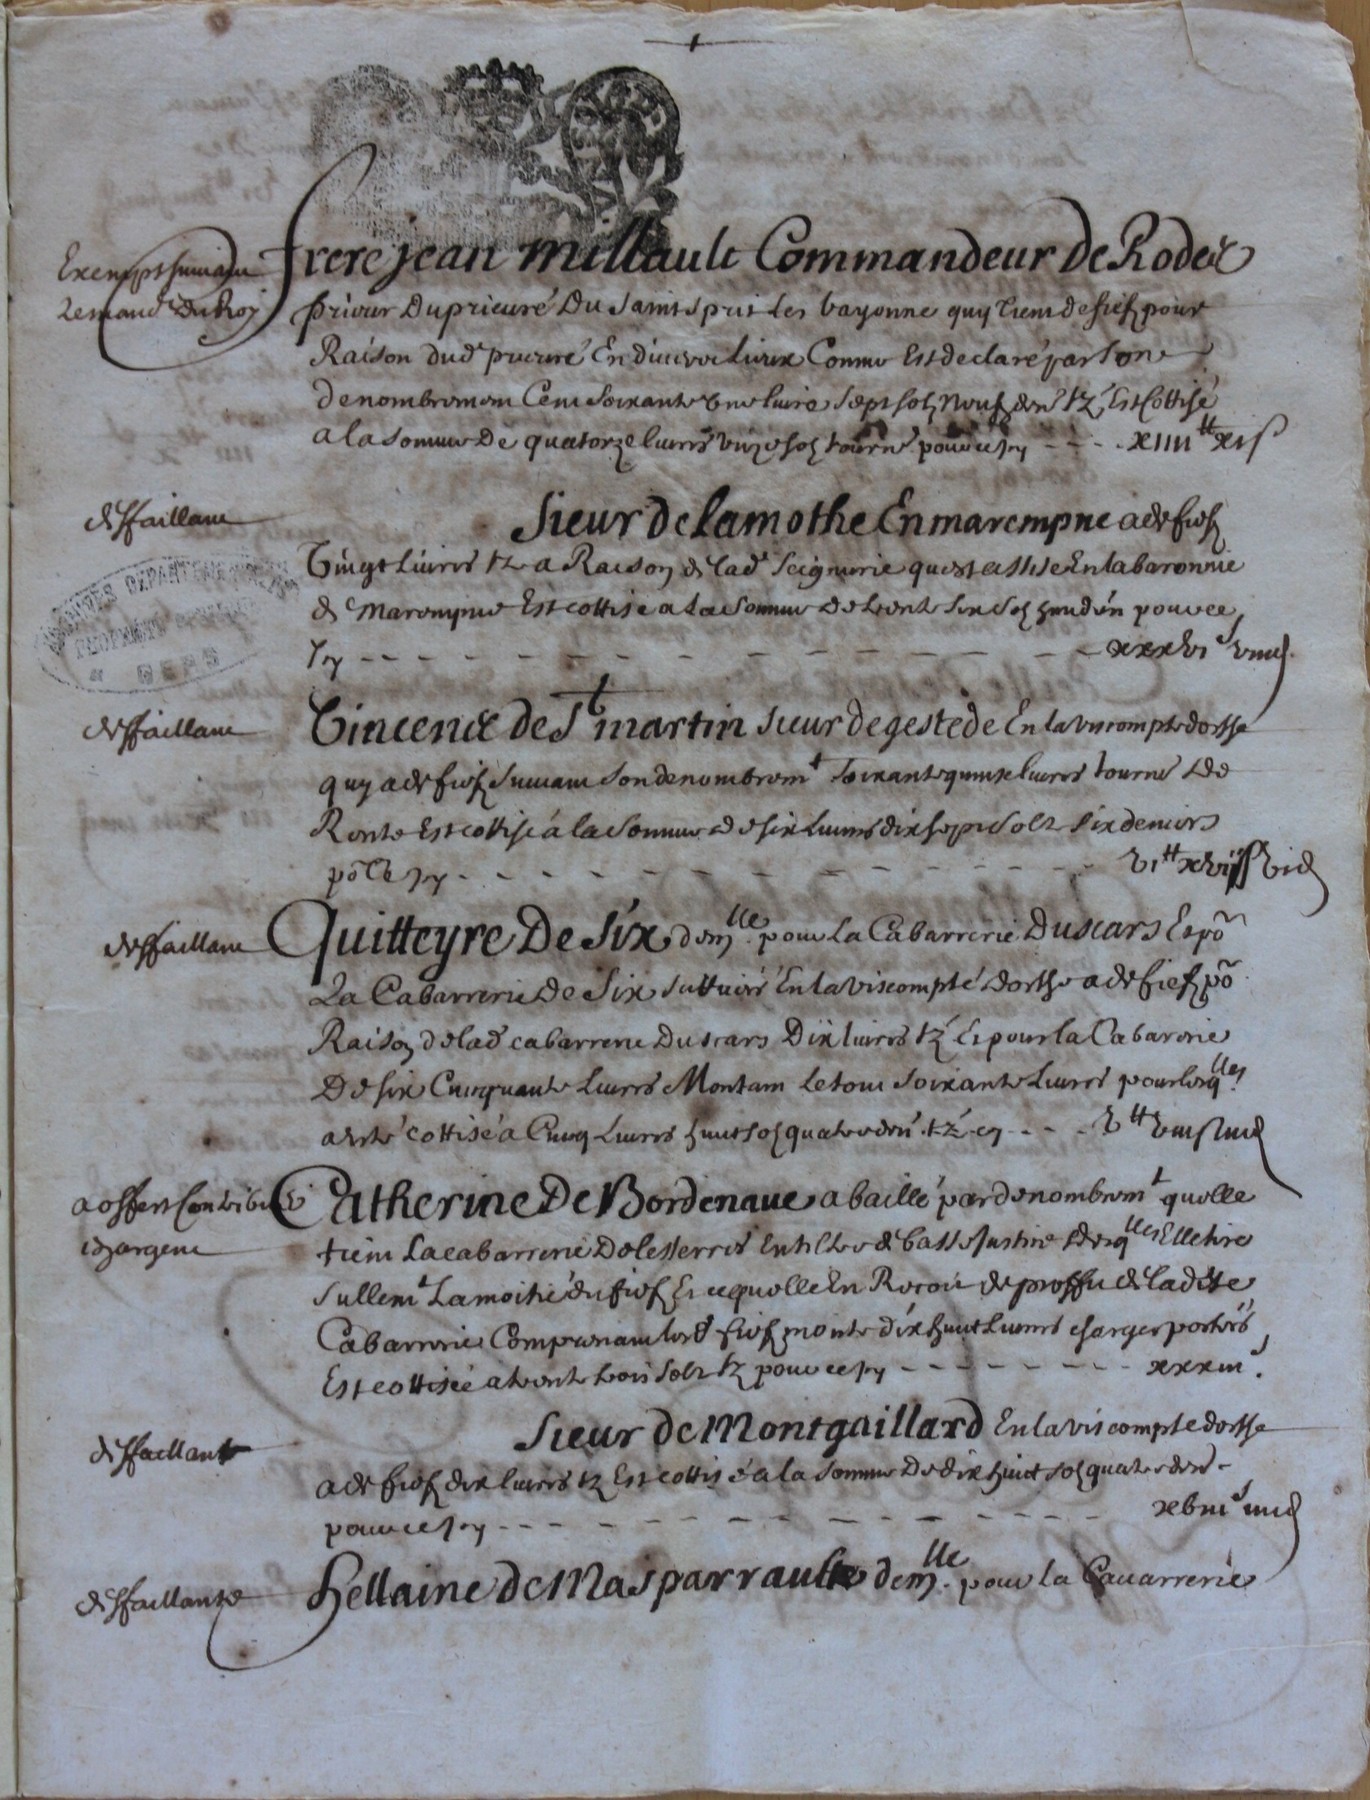 Exempt suivant frere jean millault Commandeur De Rodez
le mand.t Du Roy prieur Du prieuré Du Saint sprit les bayonne quy tient de fief pour
Raison dud prieuré En divers lieux Comme Est declaré par son
denombrement Cent soixante une livre sept solz neuf den tz Est Cottisé
a la somme De quatorze livres unze solz tourn pour ce sy - - - - xiiii tt xi s
deffaillant Sieur de lamothe En marempne a de fief
Vingt livres tz a Raison de lad Seignurie quest assise En la baronnie
de Marempne Est cottisé a la somme de trente six solz huit den pour ce
sy - - - - xxxvi s viii d
deffaillant Vincence de St martin sieur de gestede En la viscompte dorthe
quy a de fief suivant son denombrem t soixante quinze livres tourns de
Rente Est cottisé a la somme de six livres dix sept solz six deniers
po ce sy - - - - vi tt xvii s vi d
deffaillant Quitteyre De Six dem lle pour La Cabarrerie Duscars Et po
La Cabarrerie De Six sittuées En la viscompté dorthe a de fief po
Raison de lad cabarrerie Duscars Dix livres tz Et pour la Cabarerie
De six Cinquante Livres Montant le tout soixante Livres pour lesq lles
a esté cottisé a Cinq Livres huit solz quatre den tz cy - - - - v tt viii s iiii d
a offert Contribuer Catherine De Bordenaue a baillé par denombrem t quelle
en argent tient La cabarrerie De lesserres En tiltre de basse Justice desq lles Elle tire
sullem t La moitié du fief Et ce quelle En Reçoit de proffit de ladite
Cabarrerie Comprenant lesd fiefz monte dix huit Livres charges portées
Est cottisée a trente trois solz tz pour ce sy - - - - xxxiii s
deffaillant Sieur de Montgaillard En la viscompte dorthe
a de fief dix livres tz Est cottisé a la somme De dix huit solz quatre den
pour ce sy - - - - xviii s iiii d
deffaillante Hellaine de Masparraulte dem lle pour La Cauarrerie
ARCHIVES DEPARTEMENTALES
PROPRIÉTÉ PUBLIQUE
GERS